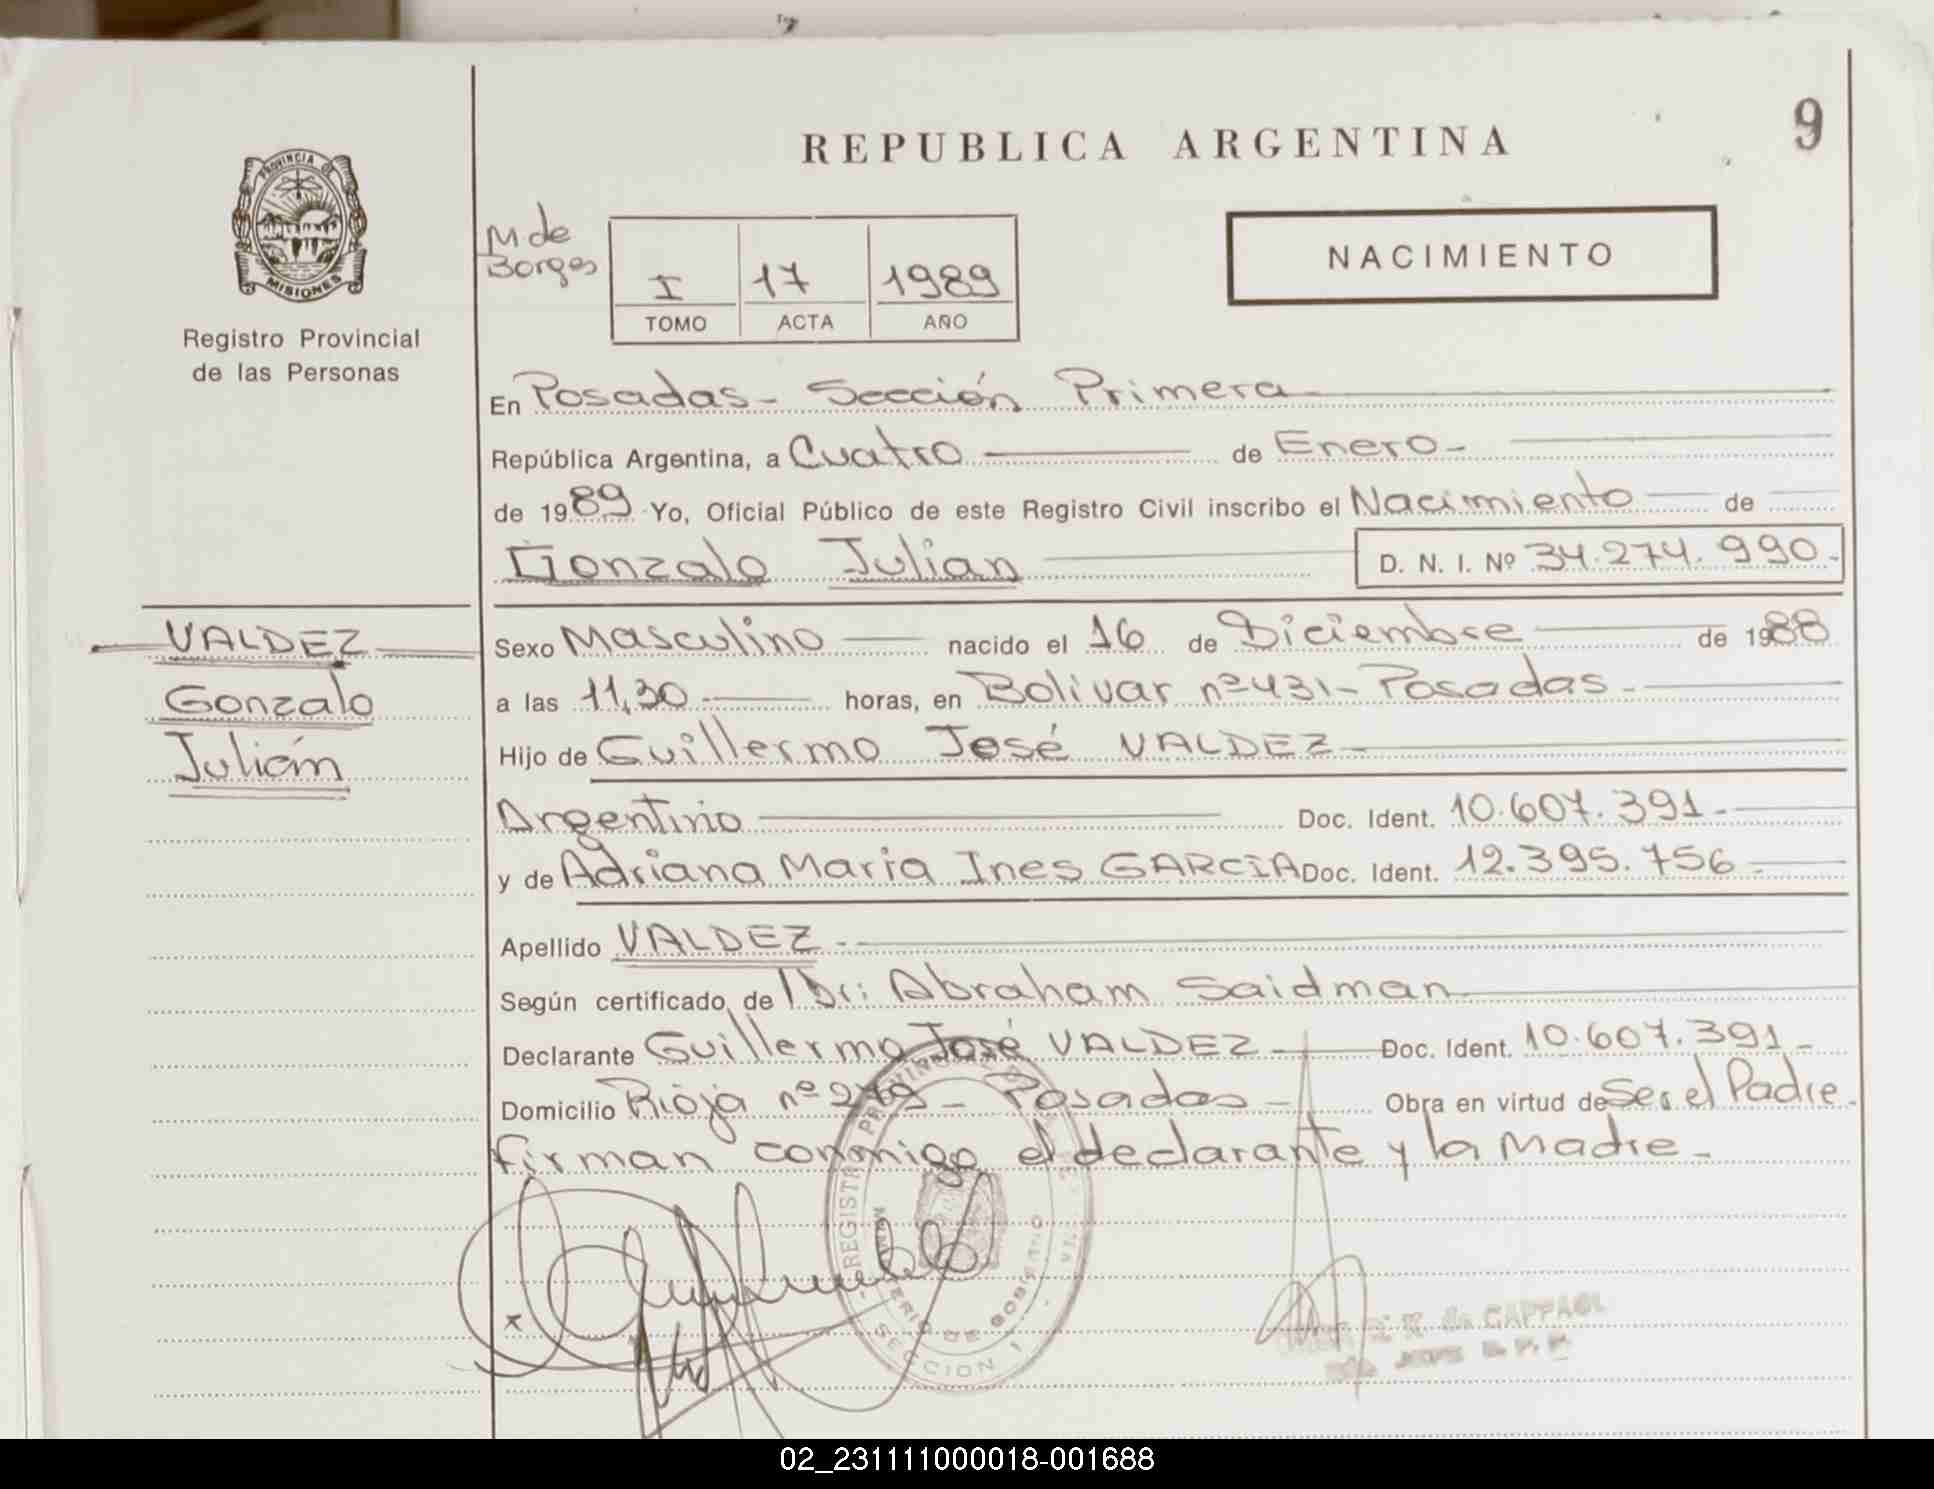 9
REPUBLICA ARGENTINA
PROVINCIA DE
MISIONES
Registro Provincial
de las Personas
M de
Borges
I 17 1989
TOMO ACTA AÑO
NACIMIENTO
En Posadas - Sección Primera
República Argentina, a Cuatro de Enero -
de 1989 Yo, Oficial Público de este Registro Civil inscribo el Nacimiento de
Gonzalo Julian D. N. I. Nº 34.274.990.-
VALDEZ
Gonzalo
Julián
Sexo Masculino nacido el 16 de Diciembre de 1988
a las 11,30 horas, en Bolivar nº 431 - Posadas -
Hijo de Guillermo José VALDEZ -
Argentino Doc. Ident. 10.607.391 -
y de Adriana Maria Ines GARCIA Doc. Ident. 12.395.756 -
Apellido VALDEZ -
Según certificado de Dr: Abraham Saidman
Declarante Guillermo José VALDEZ Doc. Ident. 10.607.391 -
Domicilio Rioja nº 279 - Posadas - Obra en virtud de Ser el Padre -
firman conmigo el declarante y la Madre -
REGISTRO PROVINCIAL DE
MINISTERIO DE GOBIERNO
SECCION 1
de CAPPAGLI
02_231111000018-001688